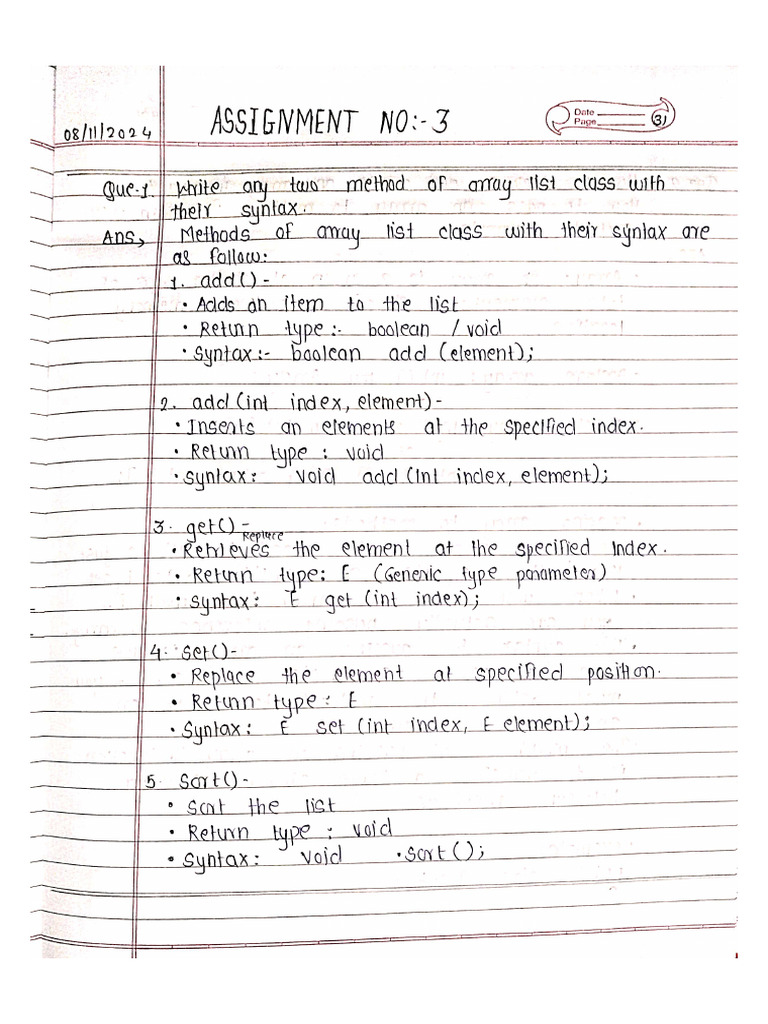 08/11/2024 ASSIGNMENT NO:- 3 Date Page 31
Que-1. Write any two method of array list class with
their syntax.
Ans, Methods of array list class with their syntax are
as follow:
1. add() -
• Adds an item to the list
• Return type :- boolean / void
• Syntax:- boolean add (element);
2. add (int index, element) -
• Inserts an elements at the specified index.
• Return type : void
• Syntax: void add (int index, element);
3. get() -
Replace
• Retrieves the element at the specified Index.
• Return type: E (Generic type parameter)
• Syntax: E get (int index);
4. Set() -
• Replace the element at specified position.
• Return type : E
• Syntax: E set (int index, E element);
5. Sort() -
• Sort the list
• Return type : void
• Syntax: void .sort ();